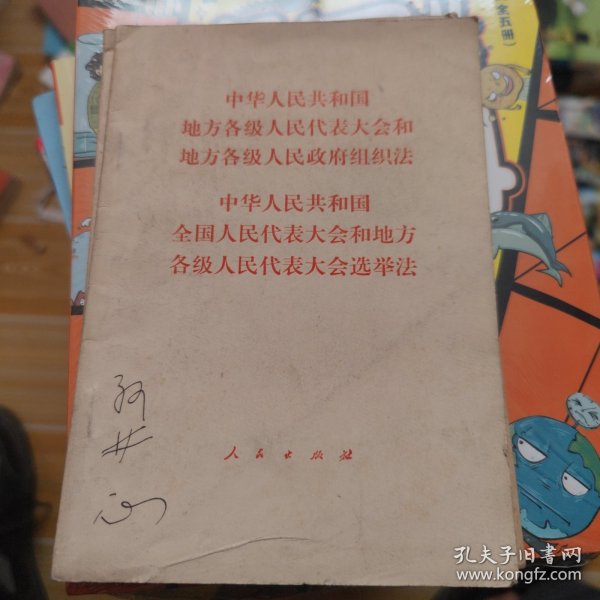 全五册）
中华人民共和国
地方各级人民代表大会和
地方各级人民政府组织法
中华人民共和国
全国人民代表大会和地方
各级人民代表大会选举法
人民出版社
孔夫子旧书网
www.kongfz.com